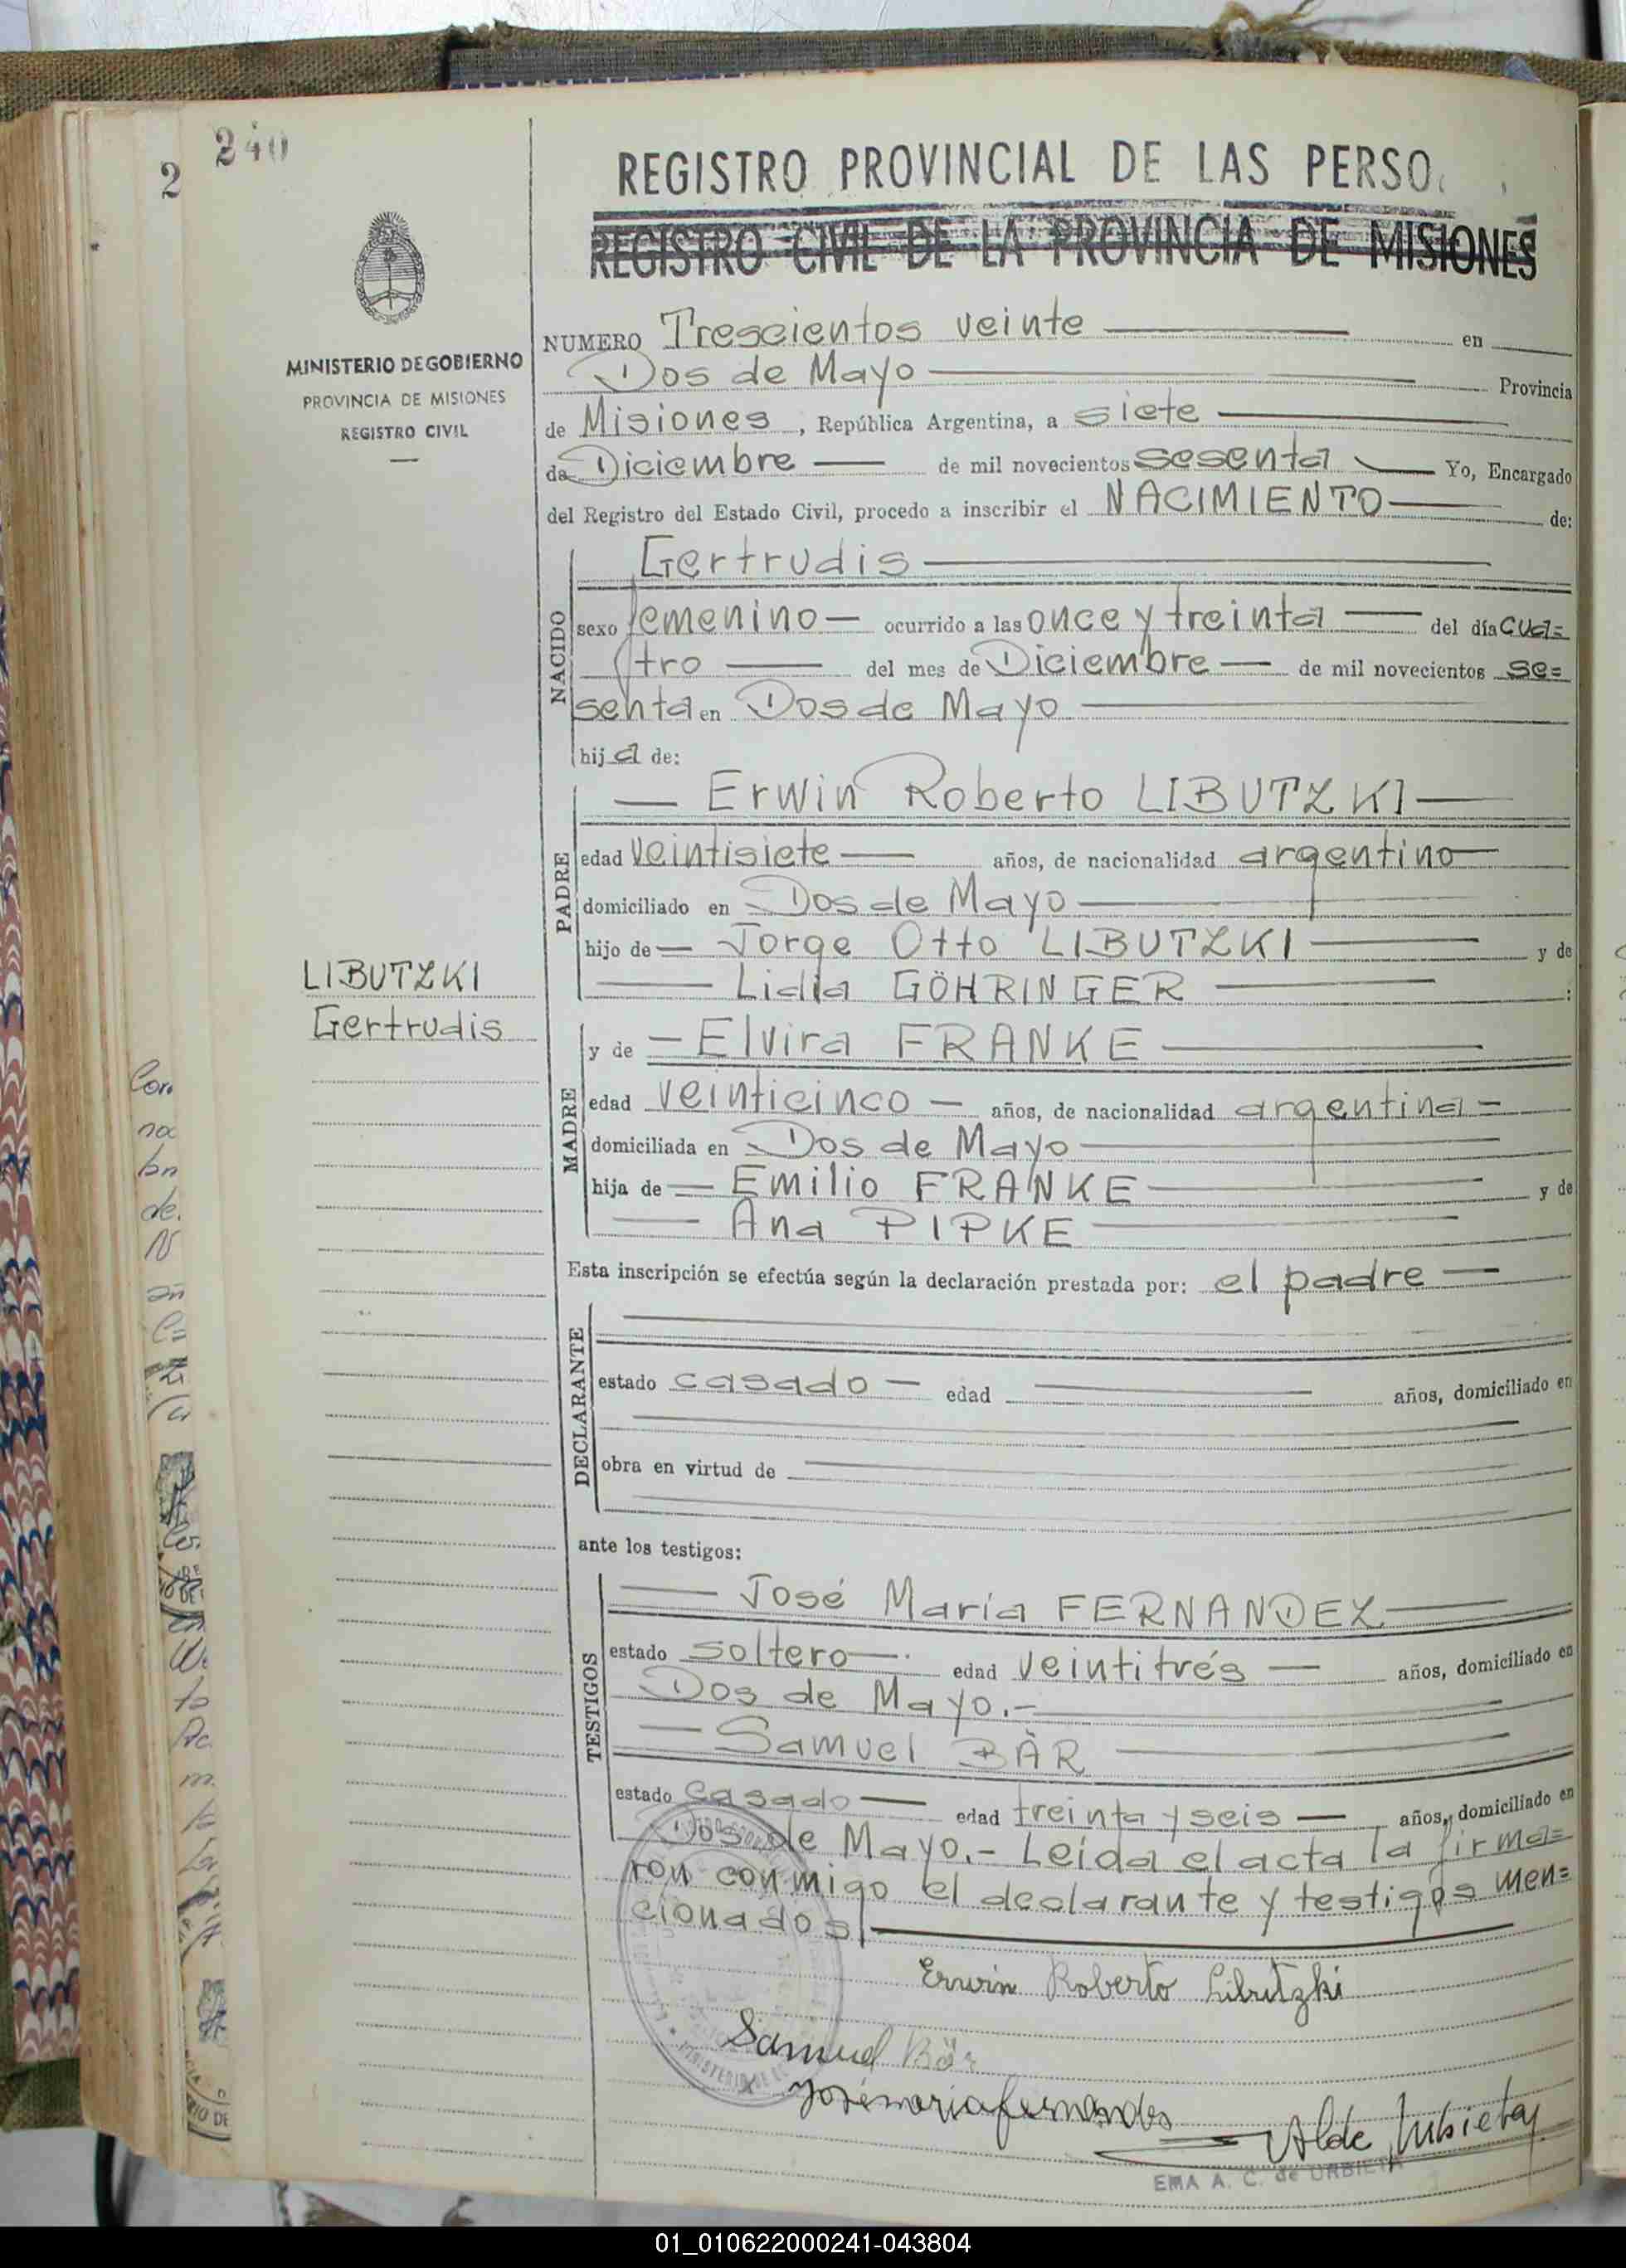 240
2
REGISTRO PROVINCIAL DE LAS PERSO
REGISTRO CIVIL DE LA PROVINCIA DE MISIONES
MINISTERIO DE GOBIERNO
PROVINCIA DE MISIONES
REGISTRO CIVIL
NUMERO Trescientos veinte en
Dos de Mayo Provincia
de Misiones, República Argentina, a siete
de Diciembre de mil novecientos sesenta Yo, Encargado
del Registro del Estado Civil, procedo a inscribir el NACIMIENTO de:
NACIDO
Gertrudis
sexo femenino ocurrido a las once y treinta del día cua=
tro del mes de Diciembre de mil novecientos se=
senta en Dos de Mayo
hija de:
PADRE
Erwin Roberto LIBUTZKI
edad veintisiete años, de nacionalidad argentino
domiciliado en Dos de Mayo
hijo de Jorge Otto LIBUTZKI y de
Lidia GÖHRINGER :
LIBUTZKI
Gertrudis
MADRE
y de Elvira FRANKE
edad veinticinco años, de nacionalidad argentina
domiciliada en Dos de Mayo
hija de Emilio FRANKE y de
Ana PIPKE
Esta inscripción se efectúa según la declaración prestada por: el padre
DECLARANTE
estado casado edad años, domiciliado en
obra en virtud de
ante los testigos:
TESTIGOS
José María FERNANDEZ
estado soltero edad veintitrés años, domiciliado en
Dos de Mayo.-
Samuel BÄR
estado casado edad treinta y seis años, domiciliado en
Dos de Mayo.- Leída el acta la firma=
ron conmigo el declarante y testigos men=
cionados
Erwin Roberto Libutzki
Samuel Bär
José maria fernandes
EMA A. C. de URBIETA
01_010622000241-043804